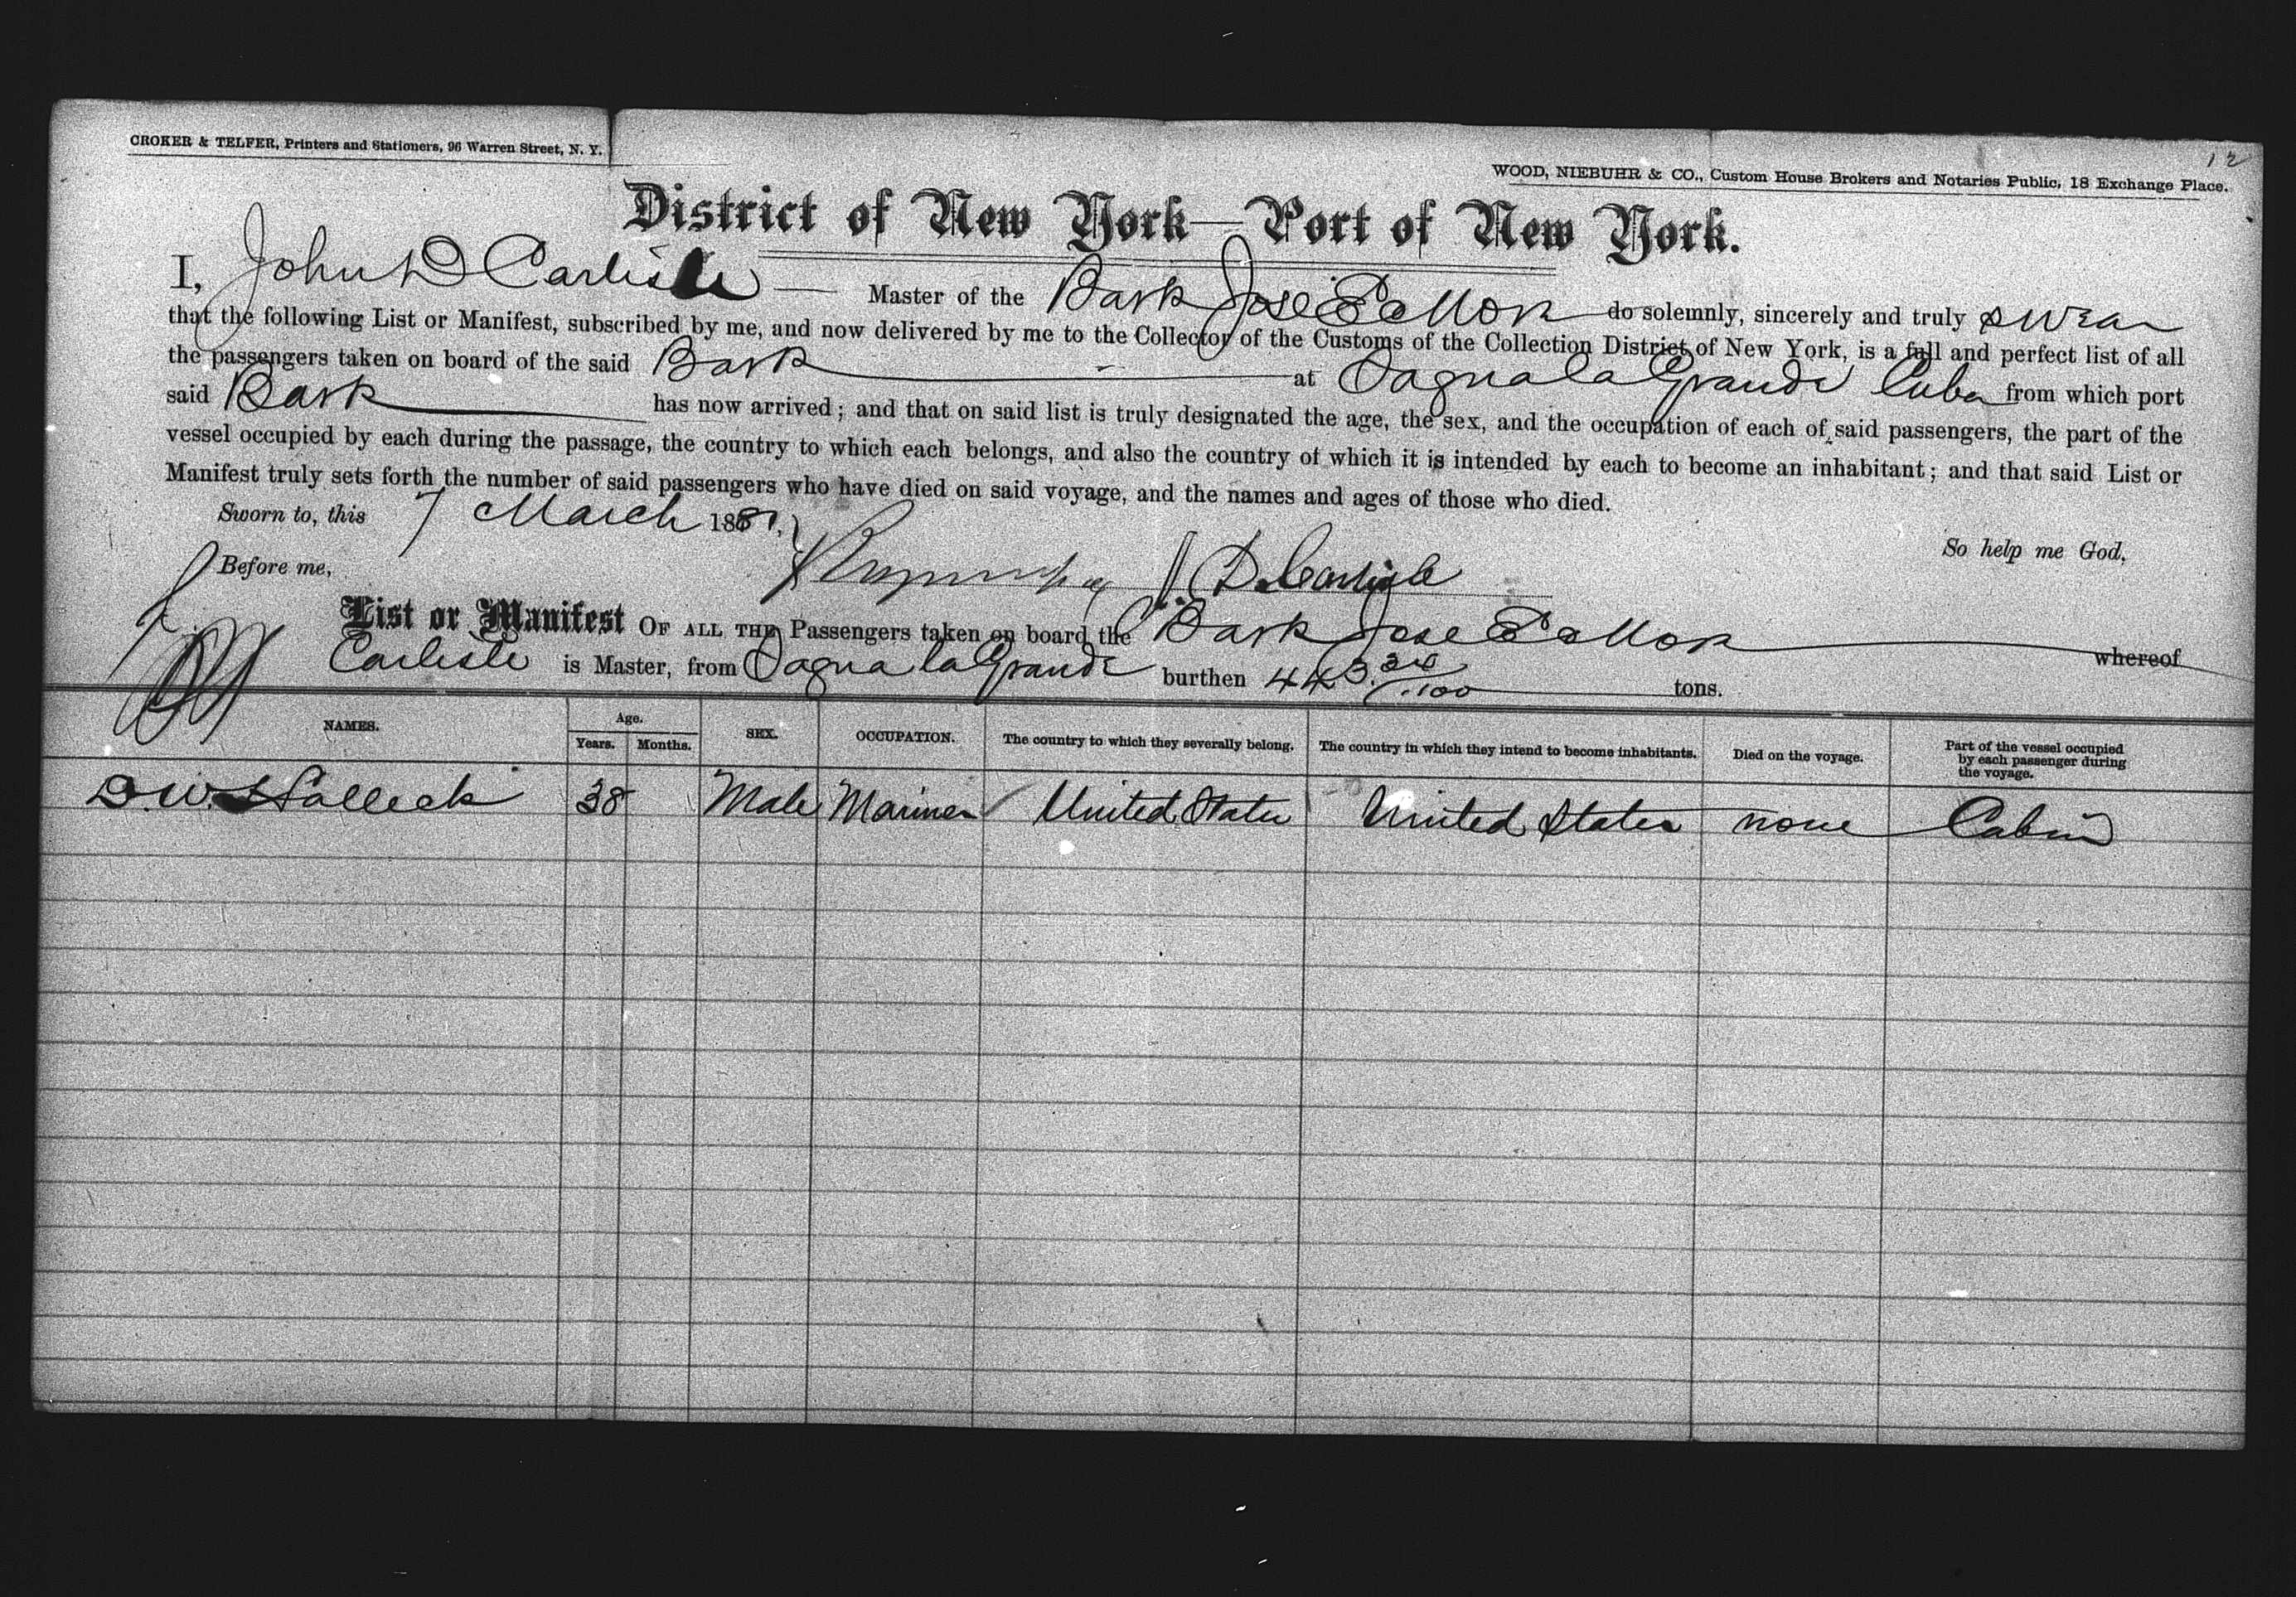 12
CROKER & TELFER, Printers and Stationers, 96 Warren Street, N. Y.
WOOD, NIEBUHR & CO., Custom House Brokers and Notaries Public, 18 Exchange Place.
District of New York—Port of New York.
I, John D Carlisle — Master of the Bark Jose E More do solemnly, sincerely and truly swear
that the following List or Manifest, subscribed by me, and now delivered by me to the Collector of the Customs of the Collection District of New York, is a full and perfect list of all
the passengers taken on board of the said Bark at Sagua la Grande Cuba from which port
said Bark has now arrived; and that on said list is truly designated the age, the sex, and the occupation of each of said passengers, the part of the
vessel occupied by each during the passage, the country to which each belongs, and also the country of which it is intended by each to become an inhabitant; and that said List or
Manifest truly sets forth the number of said passengers who have died on said voyage, and the names and ages of those who died.
Sworn to, this 7 March 1881,
So help me God,
Before me, J. D. Carlisle
List or Manifest OF ALL THE Passengers taken on board the Bark Jose E More whereof
Carlisle is Master, from Sagua la Grande burthen 443 tons.
NAMES. Age. Years. Months. SEX. OCCUPATION. The country to which they severally belong. The country in which they intend to become inhabitants. Died on the voyage. Part of the vessel occupied by each passenger during the voyage.
D. W. Halleck 38 Male Mariner United States United States none Cabin